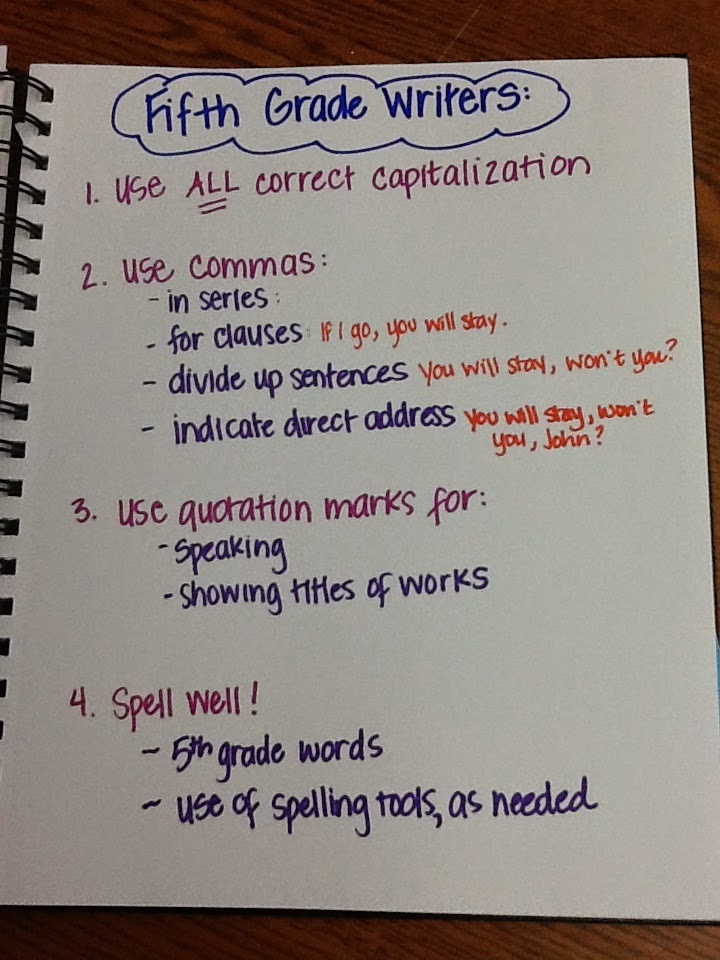 Fifth Grade Writers:
1. Use ALL correct capitalization
2. Use commas:
- in series:
- for clauses: If I go, you will stay.
- divide up sentences You will stay, won't you?
- indicate direct address You will stay, won't
you, John?
3. Use quotation marks for:
- Speaking
- Showing titles of works
4. Spell well!
~ 5th grade words
~ use of spelling tools, as needed